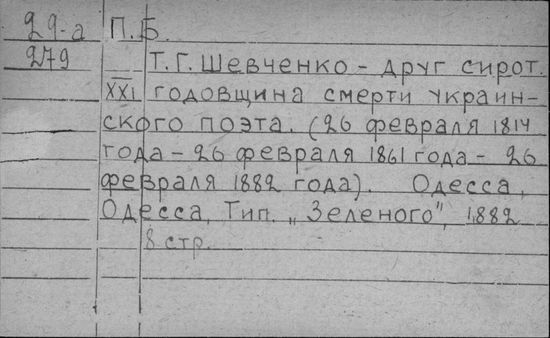 29-а П. Б.
279 Т. Г. Шевченко - друг сирот.
XXI годовщина смерти украин-
ского поэта. (26 февраля 1814
года - 26 февраля 1861 года - 26
февраля 1882 года). Одесса,
Одесса, Тип. „Зеленого", 1882
8 стр.